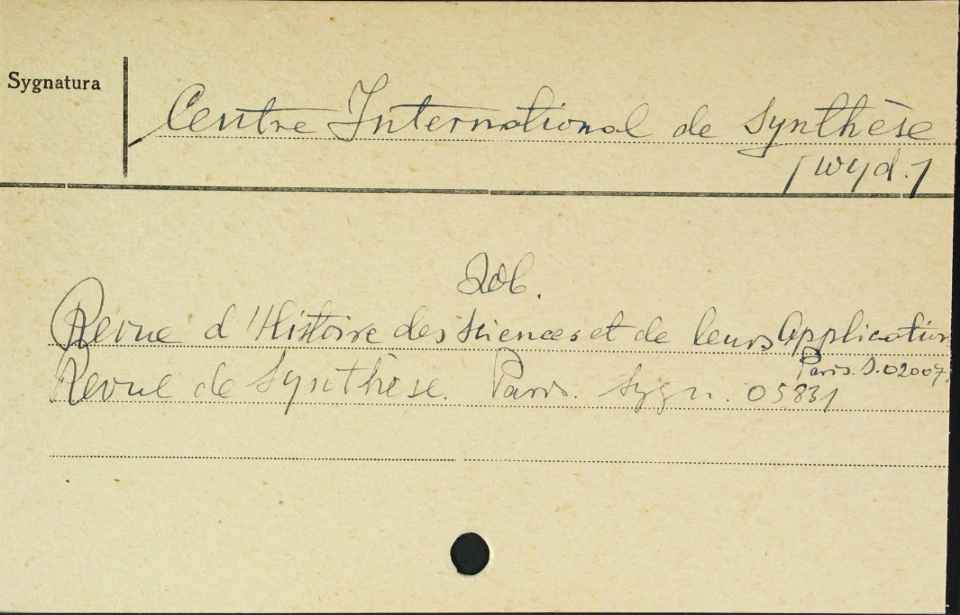 Sygnatura
Centre International de Synthèse
/wyd./
Zob.
Revue d'Histoire des Sciences et de leurs Application
Paris. S. 02007.
Revue de Synthèse. Paris. Sygn. 05831